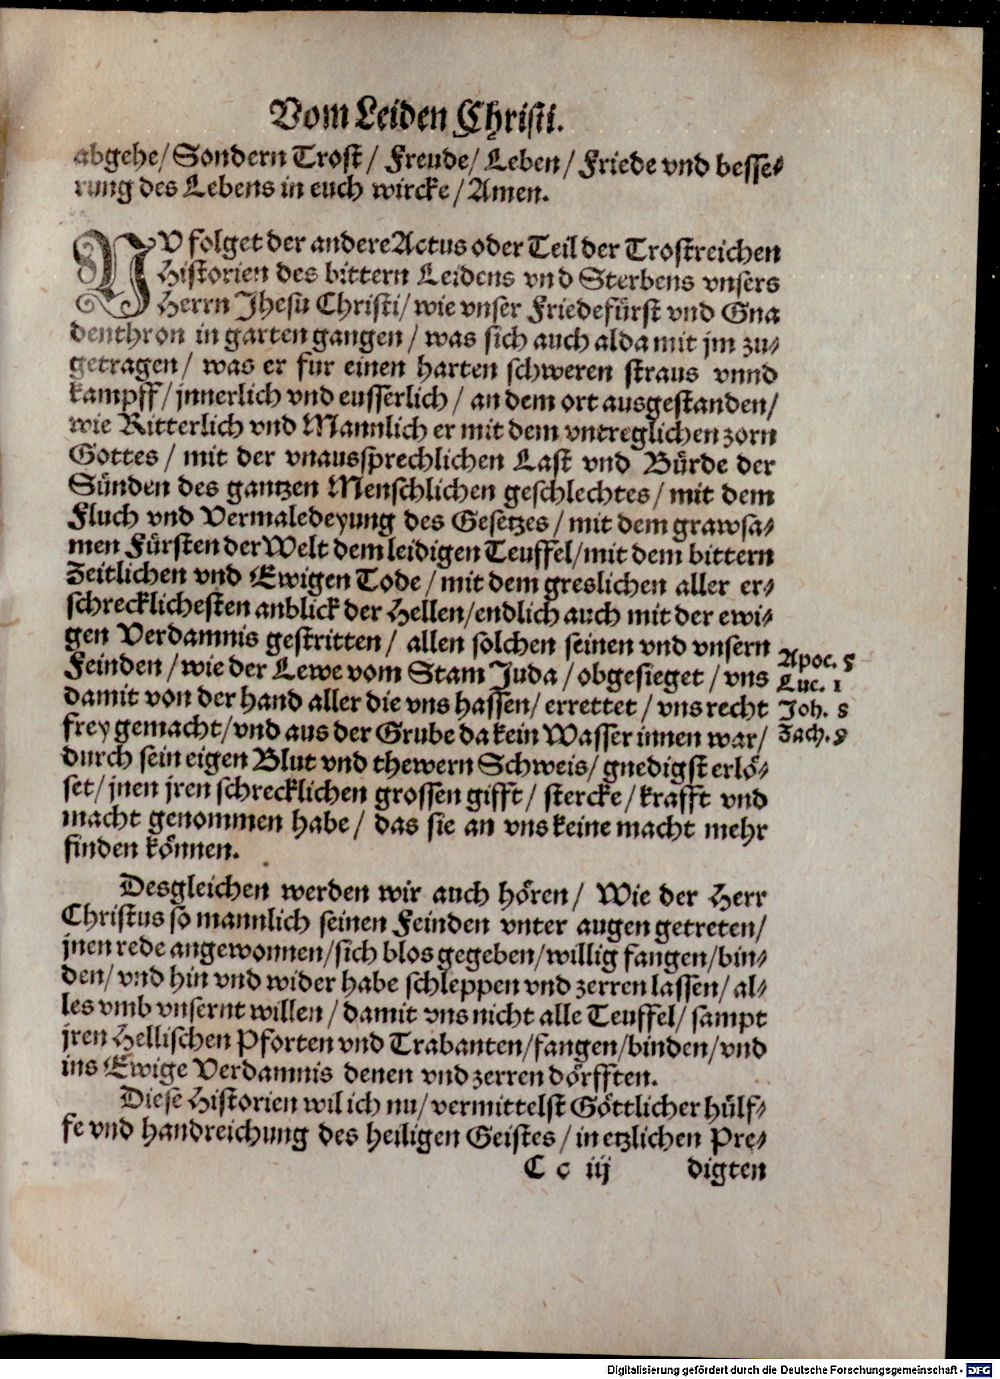 Vom Leiden Christi.
abgehe/ Sondern Trost/ Freude/ Leben/ Friede vnd besse⸗
rung des Lebens in euch wircke/ Amen.
NV folget der andere Actus oder Teil der Trostreichen
Historien des bittern Leidens vnd Sterbens vnsers
Herrn Jhesu Christi/ wie vnser Friedefürst vnd Gna
denthron in garten gangen/ was sich auch alda mit jm zu⸗
getragen/ was er fur einen harten schweren straus vnnd
kampff/ jnnerlich vnd eusserlich/ an dem ort ausgestanden/
wie Ritterlich vnd Mannlich er mit dem vntreglichen zorn
Gottes/ mit der vnaussprechlichen Last vnd Bürde der
Sünden des gantzen Menschlichen geschlechtes/ mit dem
Fluch vnd Vermaledeyung des Gesetzes/ mit dem grawsa⸗
men Fürsten der Welt dem leidigen Teuffel/ mit dem bittern
Zeitlichen vnd Ewigen Tode/ mit dem greslichen aller er⸗
schrecklichesten anblick der Hellen/ endlich auch mit der ewi⸗
gen Verdamnis gestritten/ allen solchen seinen vnd vnsern
Feinden/ wie der Lewe vom Stam Juda/ obgesieget/ vns
damit von der hand aller die vns hassen/ errettet/ vns recht
frey gemacht/ vnd aus der Grube da kein Wasser innen war/
durch sein eigen Blut vnd thewern Schweis/ gnedigst erlö⸗
set/ jnen jren schrecklichen grossen gifft/ stercke/ krafft vnd
macht genommen habe/ das sie an vns keine macht mehr
finden können.
Apoc. 5
Luc. 1
Joh. 8
Zach. 9
Desgleichen werden wir auch hören/ Wie der Herr
Christus so mannlich seinen Feinden vnter augen getreten/
jnen rede angewonnen/ sich blos gegeben/ willig fangen/ bin⸗
den/ vnd hin vnd wider habe schleppen vnd zerren lassen/ al⸗
les vmb vnsernt willen/ damit vns nicht alle Teuffel/ sampt
jren Hellischen Pforten vnd Trabanten/ fangen/ binden/ vnd
ins Ewige Verdamnis denen vnd zerren dörfften.
Diese Historien wil ich nu/ vermittelst Göttlicher hülf⸗
fe vnd handreichung des heiligen Geistes/ in etzlichen Pre⸗
C c iij digten
Digitalisierung gefördert durch die Deutsche Forschungsgemeinschaft - DFG